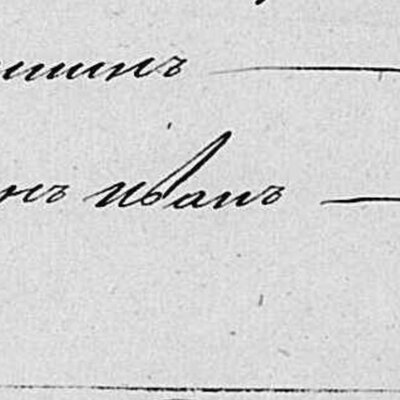 шинъ
нъ Иванъ